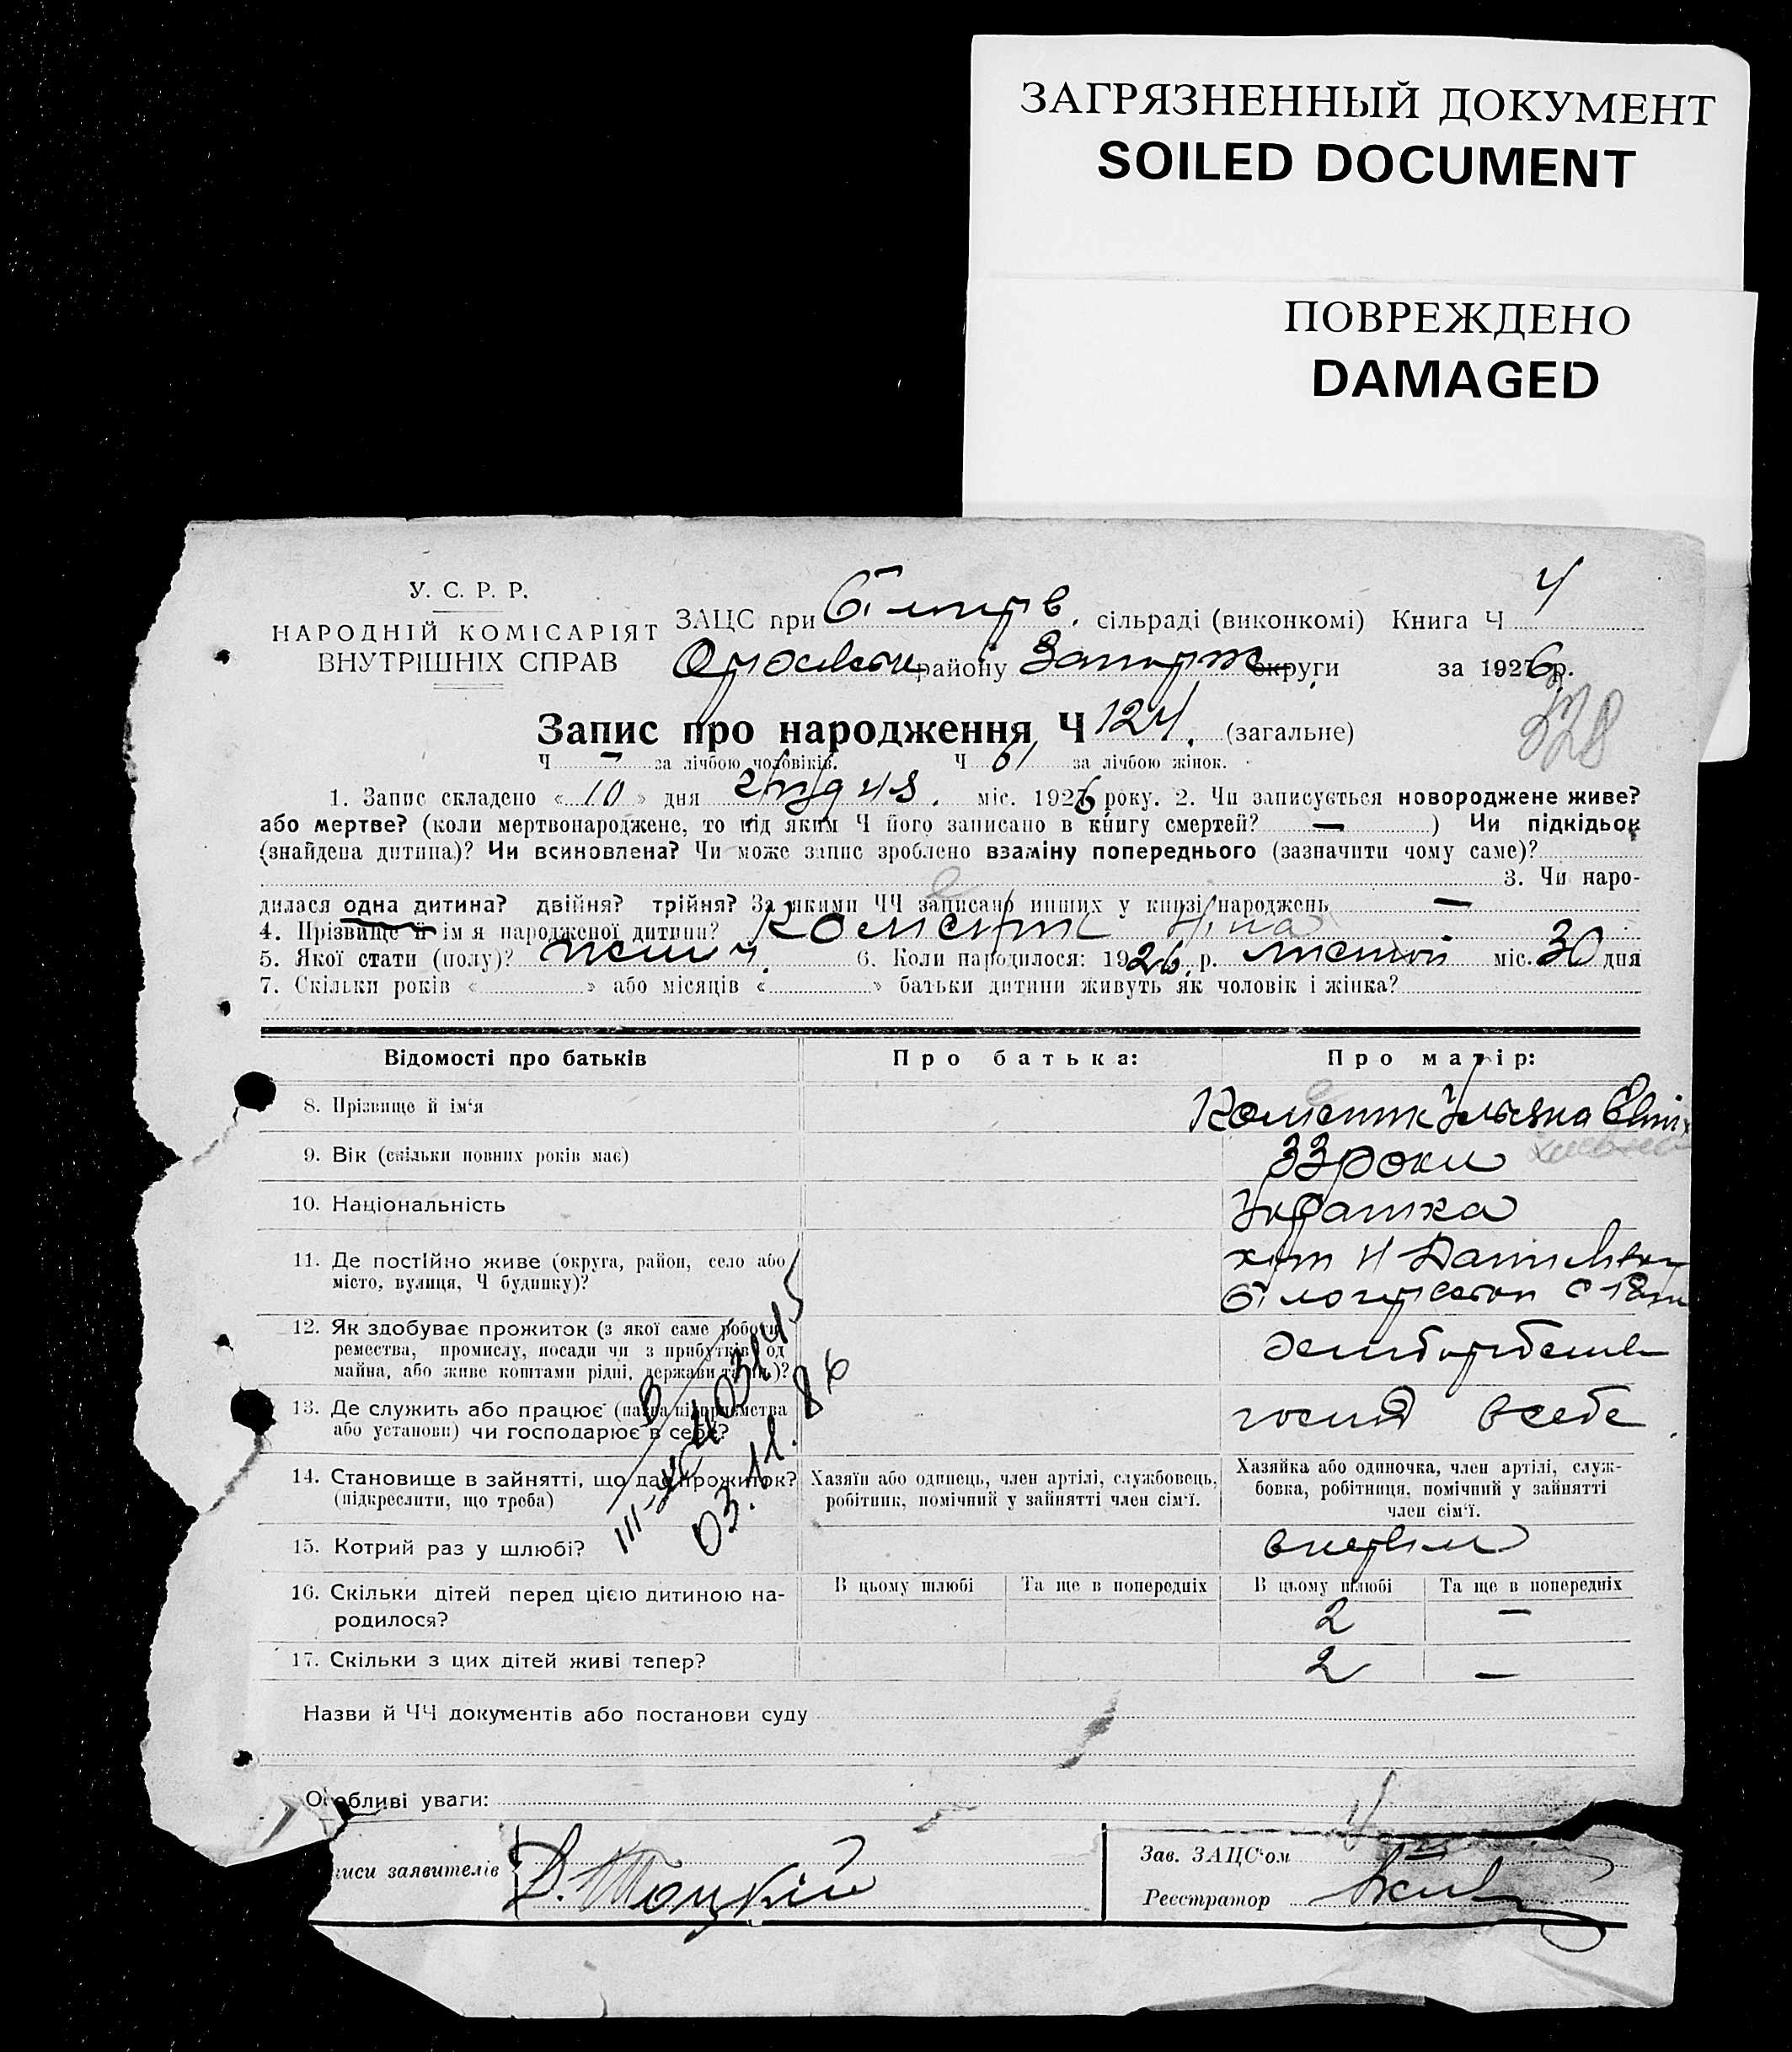 ЗАГРЯЗНЕННЫЙ ДОКУМЕНТ
SOILED DOCUMENT
ПОВРЕЖДЕНО
DAMAGED
У. С. Р. Р.
НАРОДНІЙ КОМІСАРІЯТ
ВНУТРІШНІХ СПРАВ
ЗАЦС при сільраді (виконкомі) Книга Ч 4
району округи за 1926 р.
328
Запис про народження Ч 124. (загальне)
Ч — за лічбою чоловіків. Ч 61 за лічбою жінок.
1. Запис складено « 10 » дня грудня міс. 1926 року. 2. Чи записується новороджене живе?
або мертве? (коли мертвонароджене, то під яким Ч його записано в книгу смертей? — ) Чи підкідьок
(знайдена дитина)? Чи всиновлена? Чи може запис зроблено взаміну попереднього (зазначити чому саме)?
3. Чи наро-
дилася одна дитина? двійня? трійня? За якими ЧЧ записано инших у книзі народжень —
4. Прізвище й ім я народженої дитини? Ніна
5. Якої стати (полу)? жіноч. 6. Коли народилося: 1926 р. листоп міс. 30 дня
7. Скільки років « » або місяців « » батьки дитини живуть як чоловік і жінка?
Відомості про батьків Про батька: Про матір:
8. Прізвище й ім‘я
9. Вік (скільки повних років має) 33 роки
10. Національність Українка
11. Де постійно живе (округа, район, село або
місто, вулиця, Ч будинку)?
12. Як здобуває прожиток (з якої саме роботи,
ремества, промислу, посади чи з прибутків од
майна, або живе коштами рідні, держави та ин.)?
13. Де служить або працює (назва підприємства
або установи) чи господарює в себе? господ в себе
14. Становище в зайнятті, що дає прожиток?
(підкреслити, що треба)
Хазяїн або одинець, член артілі, службовець,
робітник, помічний у зайнятті член сім‘ї.
Хазяйка або одиночка, член артілі, служ-
бовка, робітниця, помічний у зайнятті
член сім‘ї.
03.11.86
15. Котрий раз у шлюбі? вперше
16. Скільки дітей перед цією дитиною на-
родилося?
В цьому шлюбі Та ще в попередніх В цьому шлюбі Та ще в попередніх
2 —
17. Скільки з цих дітей живі тепер? 2 —
Назви й ЧЧ документів або постанови суду
Особливі уваги:
иси заявителів Д. Тоцкій
Зав. ЗАЦС‘ом
Реєстратор